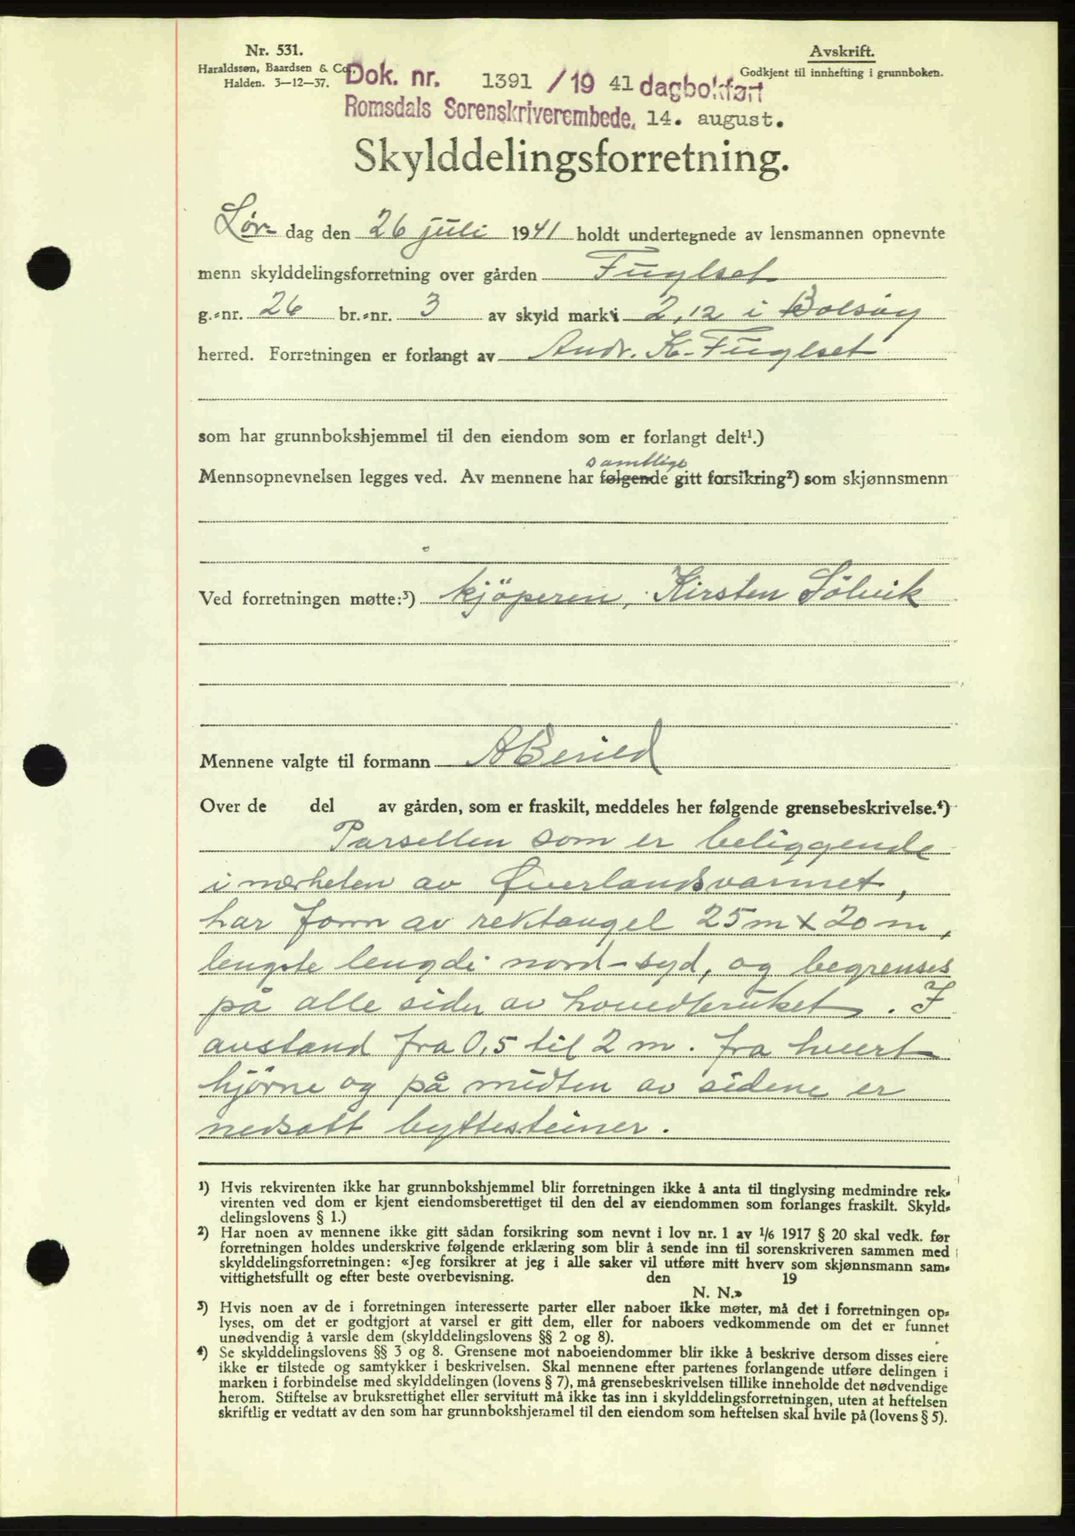 Nr. 531.
Haraldssøn, Baardsen & Co.
Halden. 3—12—37.
Avskrift.
Godkjent til innhefting i grunnboken.
Dok. nr. 1391 /19 41 dagbokført
Romsdals Sorenskriverembede, 14. august.
Skylddelingsforretning.
Lør- dag den 26 juli 1941 holdt undertegnede av lensmannen opnevnte
menn skylddelingsforretning over gården Fuglset
g.-nr. 26 br.-nr. 3 av skyld mark i 2,12 i Bolsøy
herred. Forretningen er forlangt av Andr. K. Fuglset
som har grunnbokshjemmel til den eiendom som er forlangt delt¹.)
samtlige
Mennsopnevnelsen legges ved. Av mennene har følgende gitt forsikring²) som skjønnsmenn
Ved forretningen møtte:³) kjöperen, Kirsten Sölvik
Mennene valgte til formann
Over de del av gården, som er fraskilt, meddeles her følgende grensebeskrivelse.⁴)
Parsellen som er beliggende
i nærheten av Øverlandsvannet,
har form av rektangel 25 m x 20 m,
lengste lengde nord-syd, og begrenses
på alle sider av hovedbruket. I
avstand fra 0,5 til 2 m. fra hvert
hjørne og på midten av sidene er
nedsatt byttesteiner.
¹) Hvis rekvirenten ikke har grunnbokshjemmel blir forretningen ikke å anta til tinglysing medmindre rek-
virenten ved dom er kjent eiendomsberettiget til den del av eiendommen som forlanges fraskilt. Skyld-
delingslovens § 1.)
²) Har noen av mennene ikke gitt sådan forsikring som nevnt i lov nr. 1 av 1/6 1917 § 20 skal vedk. før
forretningen holdes underskrive følgende erklæring som blir å sende inn til sorenskriveren sammen med
skylddelingsforretningen: «Jeg forsikrer at jeg i alle saker vil utføre mitt hverv som skjønnsmann sam-
vittighetsfullt og efter beste overbevisning. den 19
N. N.»
³) Hvis noen av de i forretningen interesserte parter eller naboer ikke møter, må det i forretningen op-
lyses, om det er godtgjort at varsel er gitt dem, eller for naboers vedkommende om det er funnet
unødvendig å varsle dem (skylddelingslovens §§ 2 og 8).
⁴) Se skylddelingslovens §§ 3 og 8. Grensene mot naboeiendommer blir ikke å beskrive dersom disses eiere
ikke er tilstede og samtykker i beskrivelsen. Skal mennene efter partenes forlangende utføre delingen i
marken i forbindelse med skylddelingen (lovens § 7), må grensebeskrivelsen tillike inneholde det nødvendige
herom. Stiftelse av bruksrettighet eller servitutt må ikke tas inn i skylddelingsforretningen, uten at heftelsen
skriftlig er vedtatt av den som har grunnbokshjemmel til den eiendom som heftelsen skal hvile på (lovens § 5).